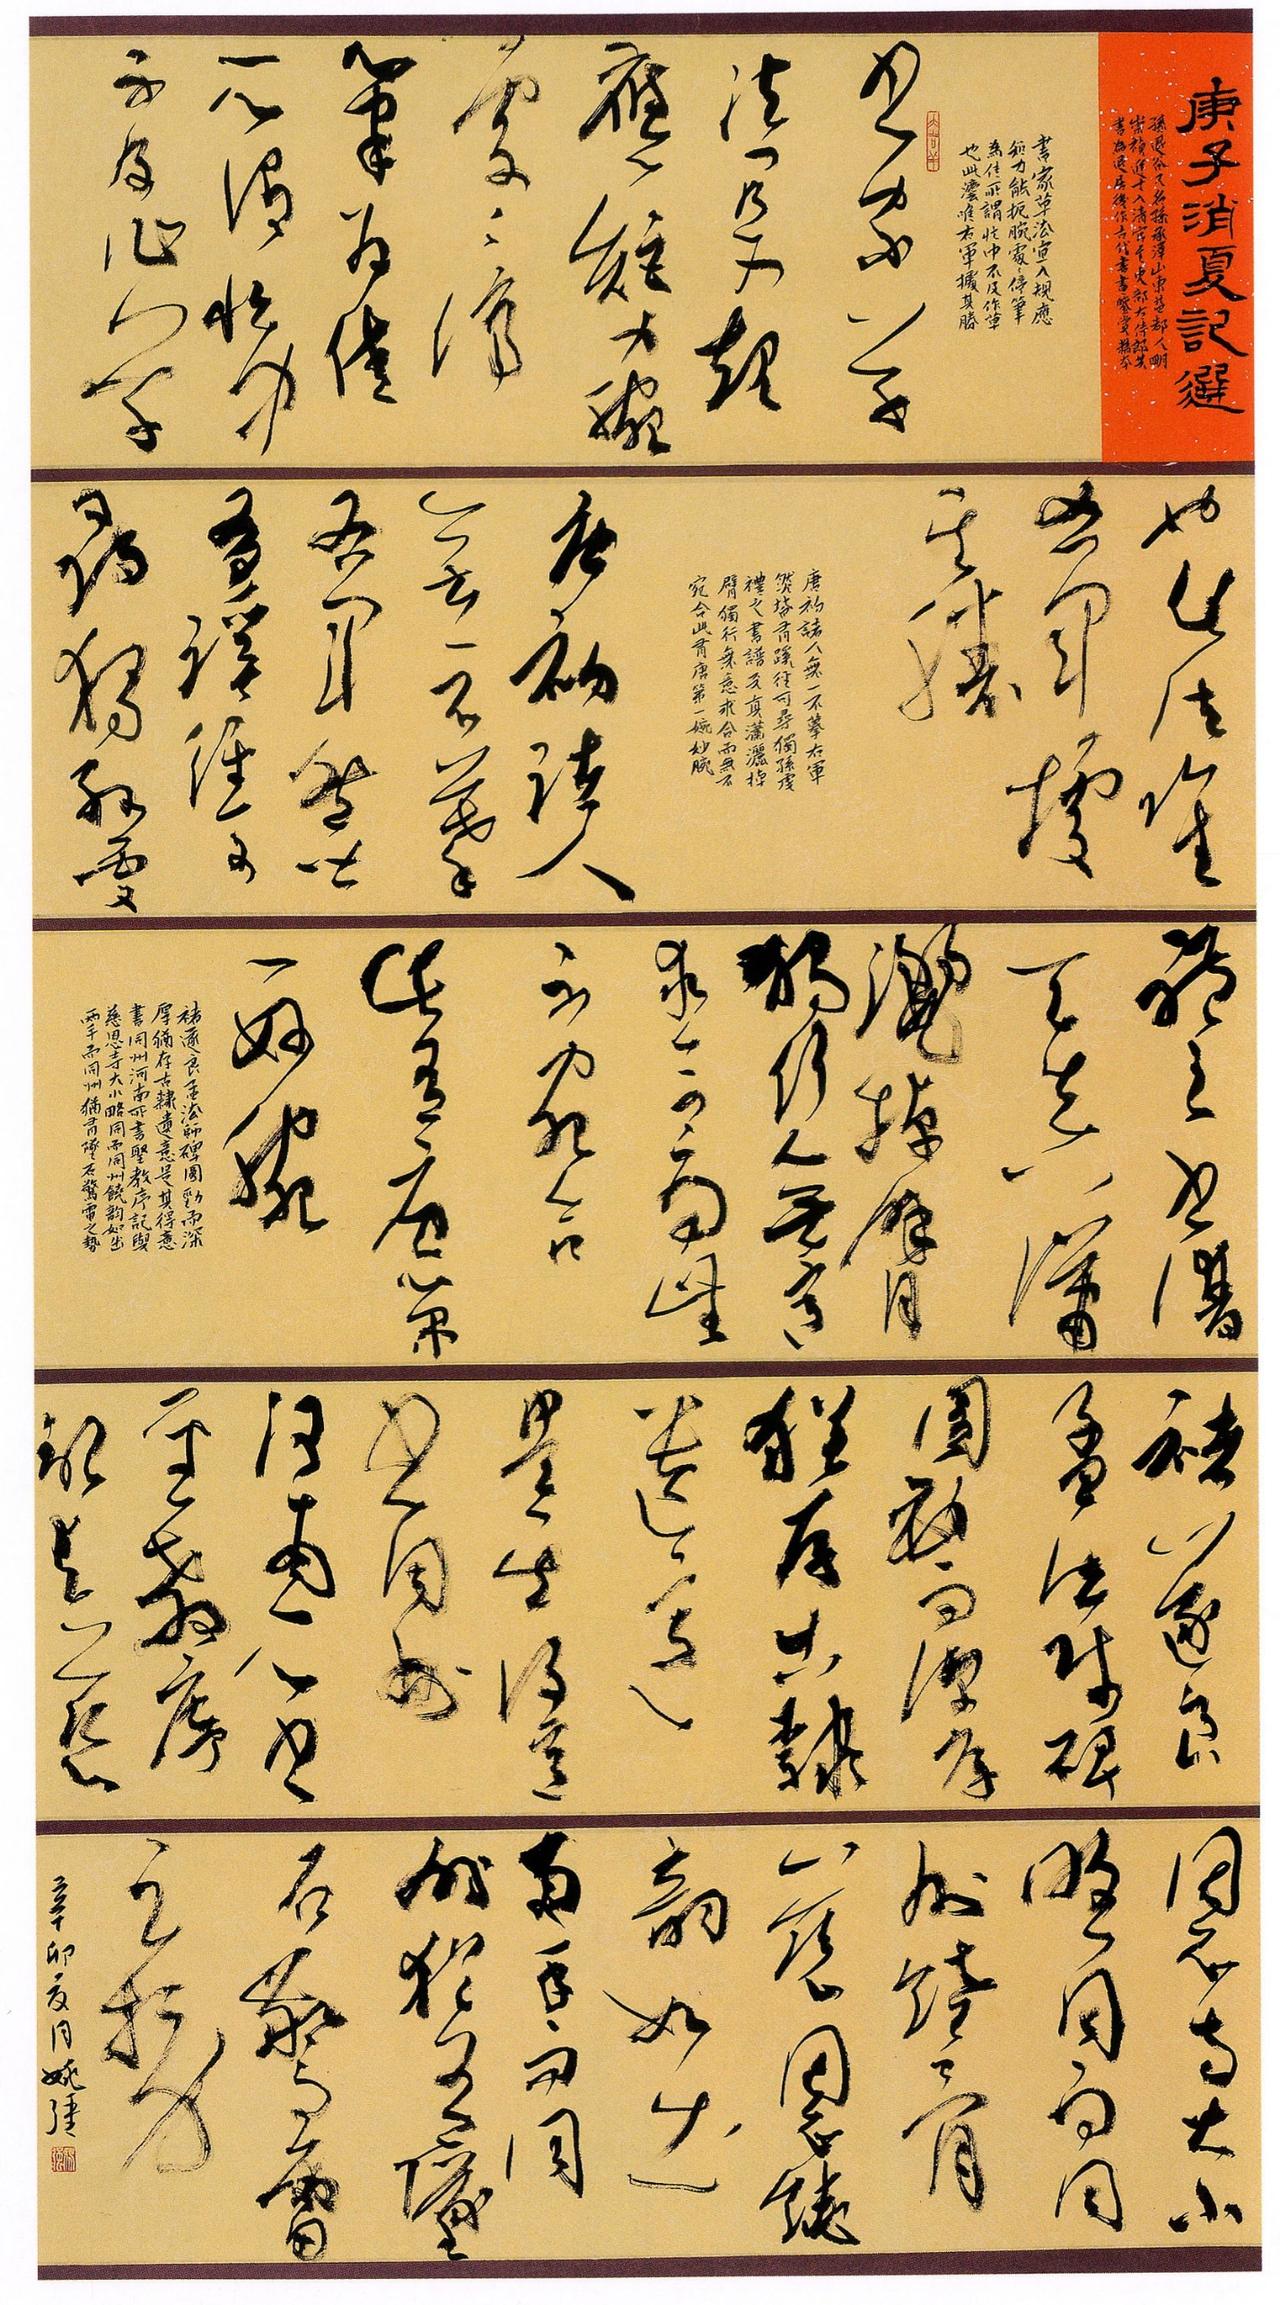 庚子消夏記選
孫退谷又名孫承澤山東益都人明
崇禎進士入清官至吏部左侍郎其
書為退居後作古代書畫鑒賞稿本
書家草法宜入規應
矩力能扼腕處々停筆
為佳所謂忙中不及作草
也此法唯右軍據其勝
書家草
法宜入規
應矩力腕
處々停
筆為佳
所謂忙中
不及作草
也此法唯
右軍據
其勝
唐初諸人無一不摹右軍
然皆有蹊徑可尋獨孫虔
禮之書譜天真瀟灑掉
臂獨行無意求合而無不
宛合此有唐第一妙腕
唐初諸人
無一不摹
右軍然皆
有蹊徑可
尋獨孫虔
禮之書譜
天真瀟
灑掉臂
獨行無意
求合而無
不宛合
此有唐第
一妙腕
褚遂良孟法師碑圓勁而深
厚猶存古隸遺意是其得意
書同州河南所書聖教序記與
慈恩寺大小略同而同州饒韻如出
兩手而同州猶有墮石驚雷之勢
褚遂良
孟法師碑
圓勁而深厚
猶存古隸
遺意
是其得意
書同州
河南所書
聖教序
記與慈
恩寺大小
略同而同
州饒骨
慈恩饒
韻如出
兩手而同
州猶有墮
石驚雷
之勢
辛卯夏月姚